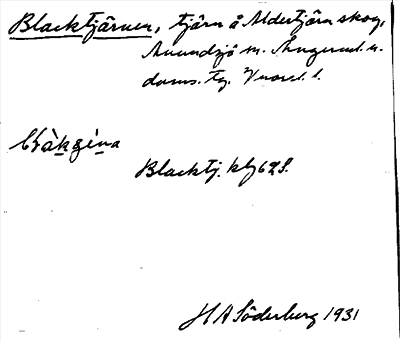 Blacktjärnen, tjärn å Aldertjärn skog,
Anundsjö sn. Ångerml. n.
doms. tg. Vnorrl. l.
Blacktj. kbg 62S.
H A Söderberg 1931